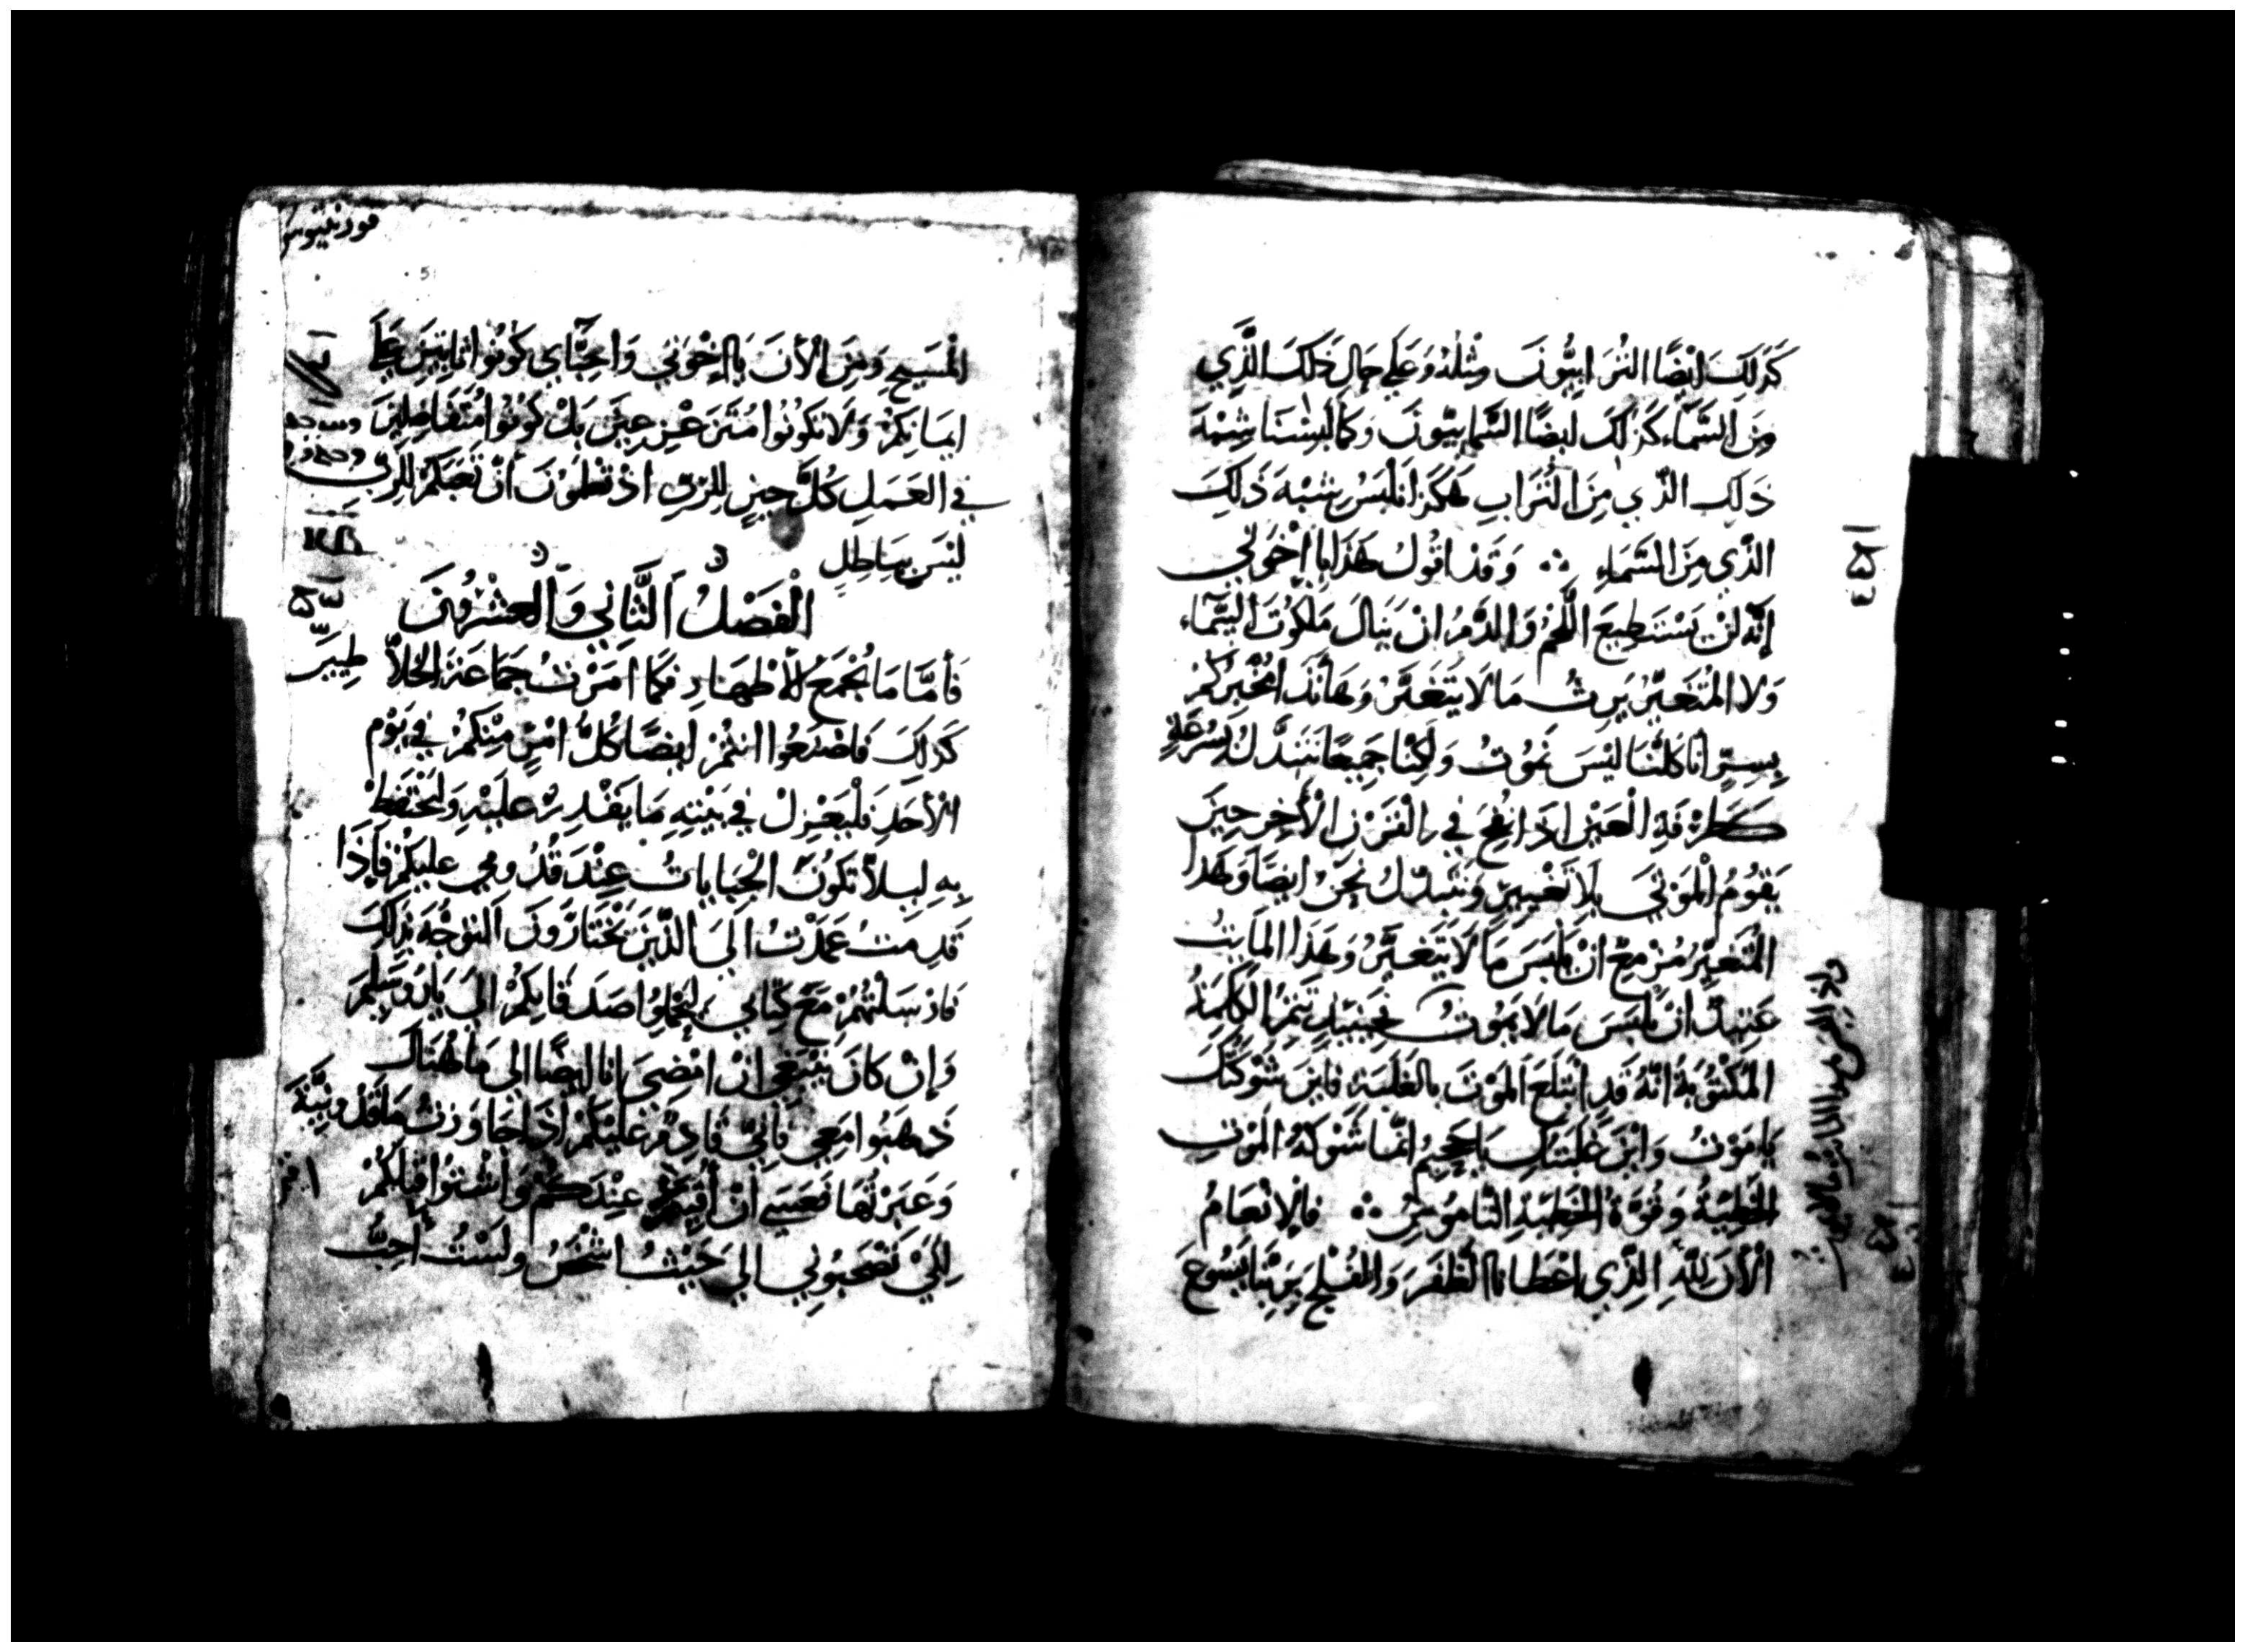 كَذَلِكَ ايْضًا التُرَابِيُّونَ مِثْلُهُ وَعَلَى حَالِ ذَلِكَ الَّذِي
مِنَ السَّمَاءِ كَذَلِكَ ايضًا السَّمَايِيُّونَ وَكَمَا لَبِسْنَا شِبْهَ
ذَلِكَ الذّي مِنَ التُرَابِ هَكَذَا نَلْبَسُ شِبْهَ ذَلِكَ
الذّي مِنَ السَّمَاءِ ∴ وَقَدْ اقُولُ هَذَا يا إخْوَتي
إنّهُ لَنْ يَسْتَطِيعَ اللَّحْمُ وَالدَّمُ انْ يَنَالَ مَلَكُوتَ السَّمَاء
وَلا المُتَغيِّرُ يَرِثُ مَا لَا يَتَغَيَّرُ وَهَأنَذَا مُخْبِرُكُمْ
بِسِرٍّ انَا كُلّنَا لَيْسَ نَمُوتُ وَلَكِنّا جَمِيعًا نَتَبَدَّلُ بِسُرْعَةٍ
كَطَرْفَةِ الْعَيْنِ اذَا نُفِخَ فِي الْقَرْنِ الْأَخِرِ حِينَ
يَقُومُ الْمَوْتَي بِلَا تَغْيِيرٍ وَنَتَبَدّلُ نَحْنُ ايضًا وَهَذَا
الْمُتَغيِّرُ مُزْمِعٌ انْ يَلْبَسَ مَا لَا يَتَغَيَّرُ وَهَذَا المَايتُ
عَتِيدٌ انْ يَلْبَسَ مَا لَا يَمُوتُ فَحِينَيِذٍ تَتِمّ الْكَلِمَةُ
المَكْتُوبَةُ انّهُ قَدِ ابْتُلِعَ المَوْتَ بِالغَلَبَةِ فَايْنَ شَوْكَتُكَ
يَا مَوْتُ وَايْنَ غَلَبَتُكِ يَا جَحِيمُ انّمَا شَوْكَةُ المَوْتِ
الخَطِيّةُ وَقُوّةُ الخَطِيّةِ النّامُوسُ ∴ فَالإنْعَامُ
الْأنَ للّهِ الَّذِي اعْطَانَا الظَّفَرَ وَالفُلْجَ بِرَبِّنَا يَسُوعَ
المَسِيحِ وَمِنَ الْأنَ يَا إخْوَتي وَاحِبَّآيي كُونُوا ثَابِتِينَ عَلَى
ايمَانِكُمْ وَلَا تَكُونُوا مُتَزَعْزِعِينَ بَلْ كُونُوا مُتَفَاضِلِينَ
في العَمَلِ كُلَّ حِينٍ لِلرّبِّ اذْ تَعْلَمُونَ أنّ تَعَبَكُمْ لِلرّبّ
لَيْسَ بِبَاطِلٍ
الْفَصْلُ الثَّانِي وَالْعِشْرُونَ
فَأمَّا مَا يُجْمَعُ للأطْهَارِ فَكَمَا امَرْتُ جَمَاعَةَ غَلَا
طِيَّةَ
كَذَلِكَ فَاصْنَعُوا انتُمْ ايضًا كُلُّ امْرٍ مِنْكُمْ فِي يَوْمِ
الْأحَدِ فَلْيَعْزِلْ فِي بَيْتِهِ مَا يَقْدِرُ عَلَيْهِ وَلْيَحْتَفِظْ
بِهِ لِيلاّ تَكُونَ الْجِبَايَاتُ عِنْدَ قُدُومِي عليكُمْ فَإِذَا
قَدِمْتُ عَمَدْتُ الَى الذّينَ تَخْتَارُونَ التوَجُّهَ بِذَلِكَ
فَارْسَلْتُهُمْ مَعَ كِتَابي لِيَحْمِلوُا صَدَقَاتِكُمْ الَى يَارُوسَلِيمَ
وَإنْ كَانَ يَنْبَغِي انْ امْضِيَ انا ايضًا الي مَا هُنَاكَ
ذَهَبُوا مَعِي فَاِنّي قَادِمٌ عَلَيْكُمْ اذَا جَاوَزْتُ مَاقَدُونِيَّةَ
وَعَبَرْتُهَا فَعَسَى انْ أُقِيمَ عِنْدَكُمْ وَاشْتُوا قِبَلَكُمْ
لِكَيْ تَصْحَبُونِي الي حَيْثُ اشْخَصُ وَلَسْتُ أُحِبُّ